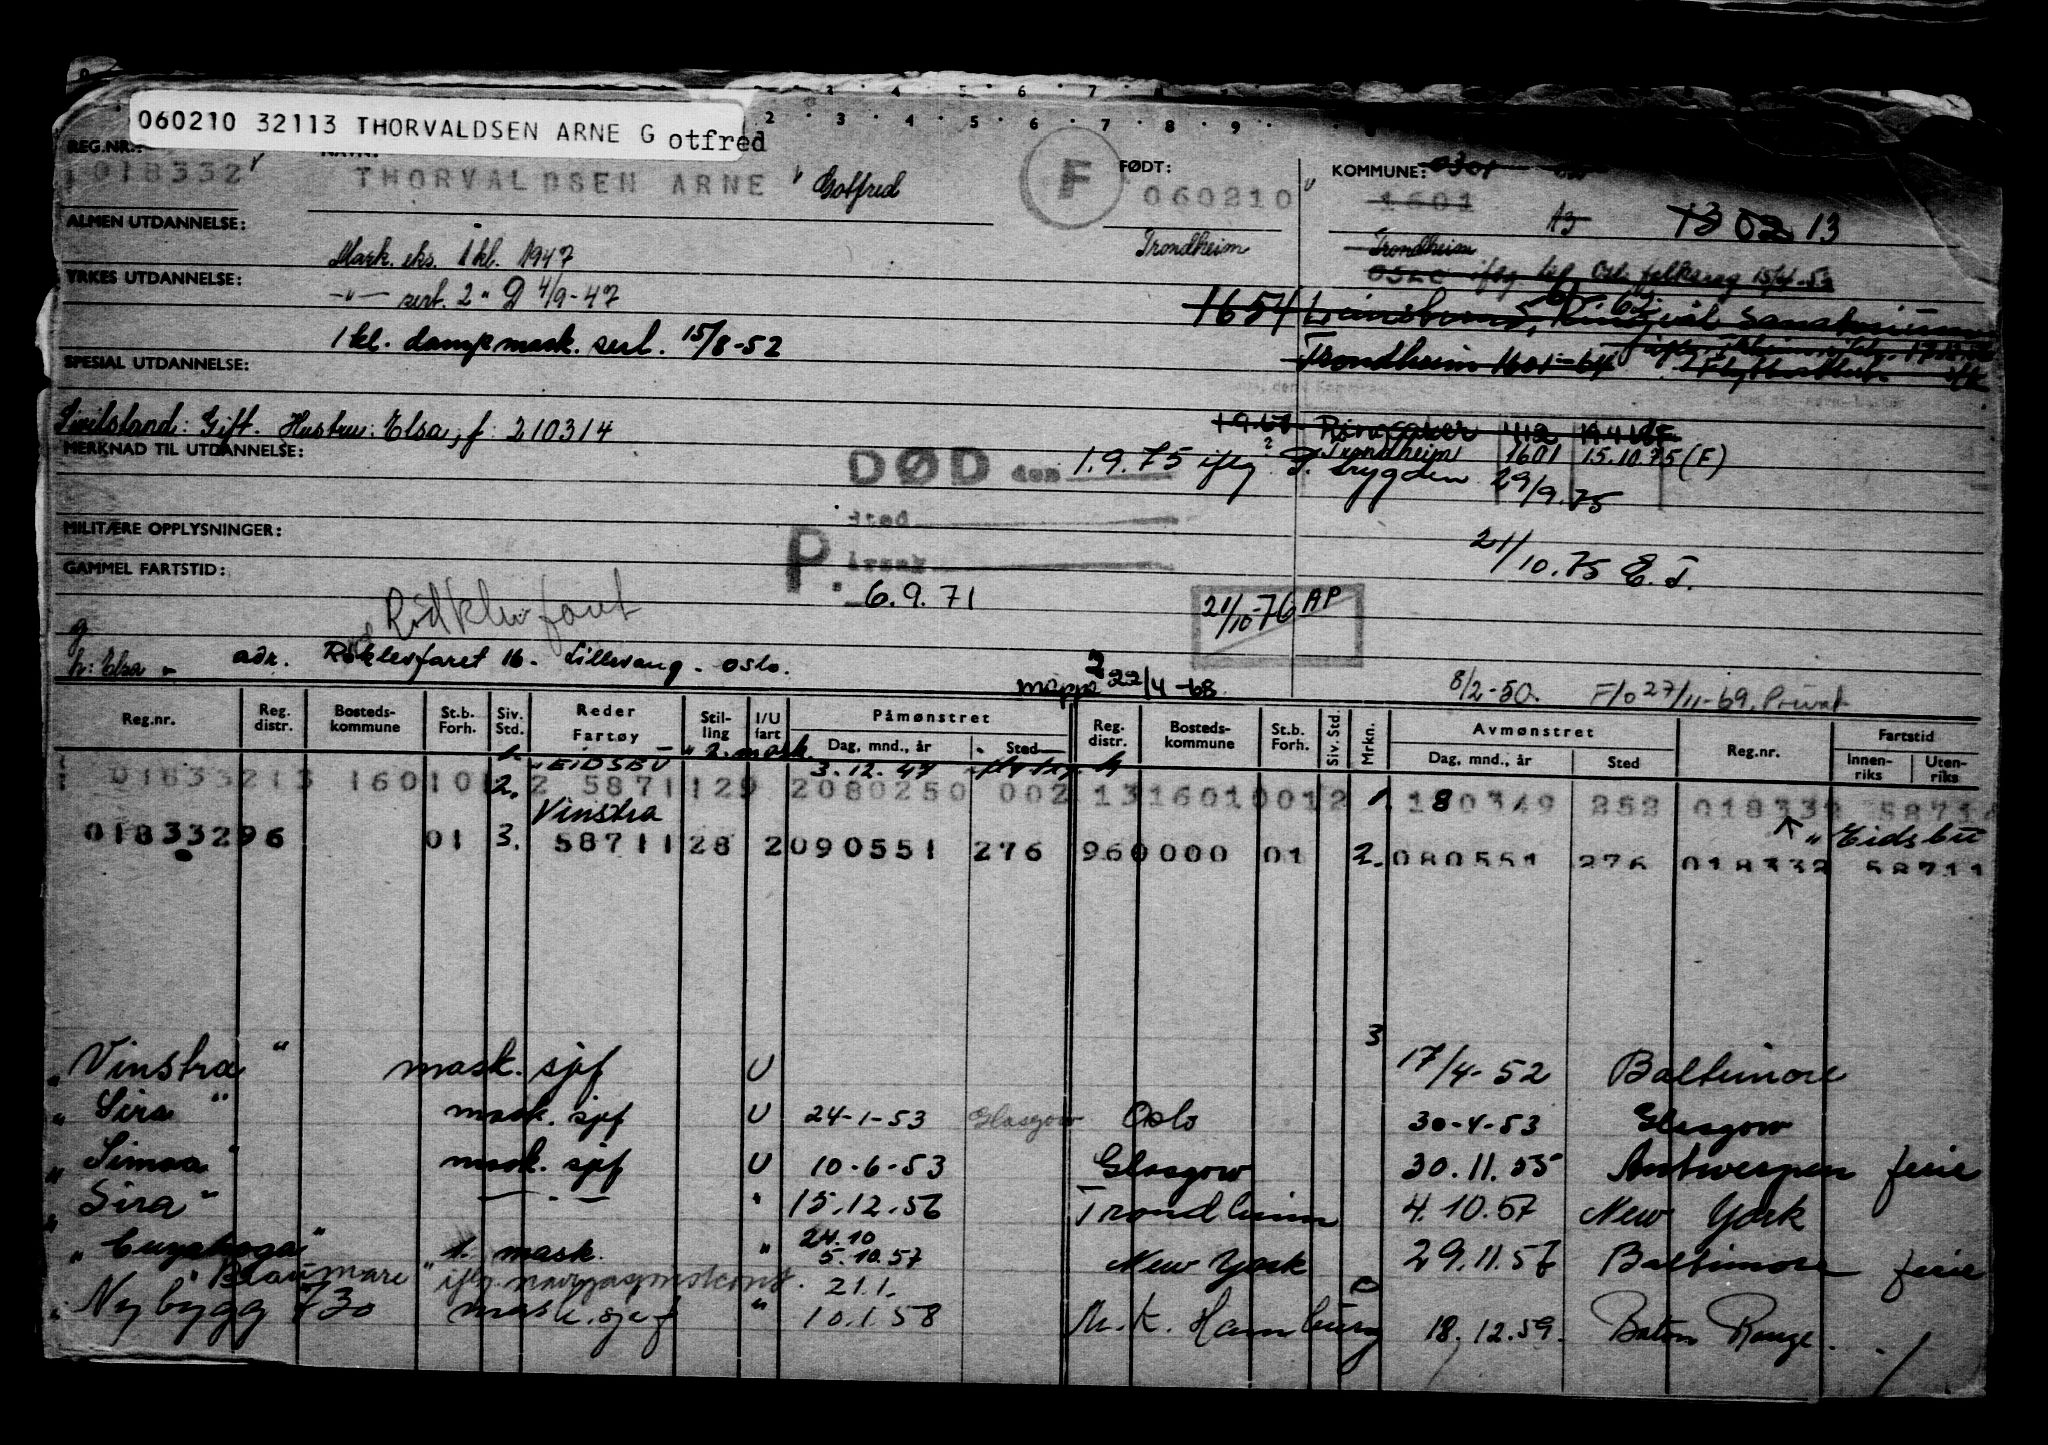 060210 32113 THORVALDSEN ARNE G otfred
REG.NR.:
018332
THORVALDSEN ARNE Gotfred
F
FØDT:
060210
Trondheim
KOMMUNE:
1601
13 02 13
Trondheim
ALMEN UTDANNELSE:
Mask. eks. 1 kl. 1947
YRKES UTDANNELSE:
-"- sert. 2 " D 4/9-47
1 kl. damp mask. sert. 15/8-52
1654
Trondheim 1601-64
SPESIAL UTDANNELSE:
Sivilstand: Gift. Hustru: Elsa, f: 210314
Ringsaker 412
MERKNAD TIL UTDANNELSE:
DØD den 1.9.75 iflg. T. trygden 29/9.75
Trondheim 1601 15.10.75 (F)
sted
MILITÆRE OPPLYSNINGER:
P. årsak
21/10.75 E.T.
GAMMEL FARTSTID:
6.9.71
21/10-76 AP
h: Elsa
adr. Røklevfaret 16 - Lillevang - Oslo.
mappe 2 22/4-68
8/2-50. F/o 27/11-69. Privat
Reg.nr. Reg. distr. Bosteds- kommune St.b. Forh. Siv. Std. Reder Fartøy Stil- ling I/U fart Påmønstret Dag, mnd., år Sted Reg. distr. Bosteds- kommune St.b. Forh. Siv. Std. Mrkn. Avmønstret Dag, mnd., år Sted Reg.nr. Fartstid Innen- riks Uten- riks
1. "EIDSBU" 2. mask. 3.12.47
01833213 160101 2. 2 5871129 2080250 002 1316010012 1. 180349 252 018332 58714
Vinstra "Eidsbu
01833296 01 3. 58711 28 2090551 276 960000 01 2. 080551 276 018332 58711
3
"Vinstra" mask. sjef U 17/4-52 Baltimore
"Sira" mask. sjef U 24-1-53 Glasgow Oslo 30-4-53 Glasgow
"Simoa" mask. sjef U 10-6-53 Glasgow 30.11.55 Antwerpen ferie
"Sira" —.— " 15.12.56 Trondheim 4.10.57 New York
24.10
"Cuyahoga" 1. mask. " 5.10.57 New York 29.11.57 Baltimore ferie
21.1.
"Nybygg 730 mask. sjef " 10.1.58 M.K. Hamburg 18.12.59. Baton Rouge.